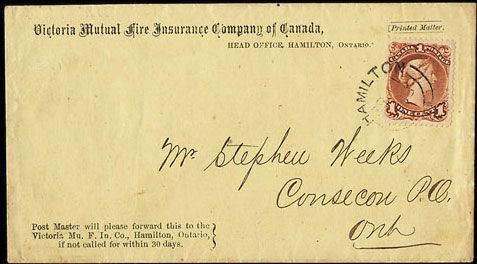 Victoria Mutual Fire Insurance Company of Canada,
HEAD OFFICE, HAMILTON, ONTARIO.
[Printed Matter.
HAMILTON
CANADA POSTAGE
1 ONE CENT 1
Mr Stephen Weeks
Consecon P.O.
Ont
Post Master will please forward this to the
Victoria Mu. F. In. Co., Hamilton, Ontario,
if not called for within 30 days.